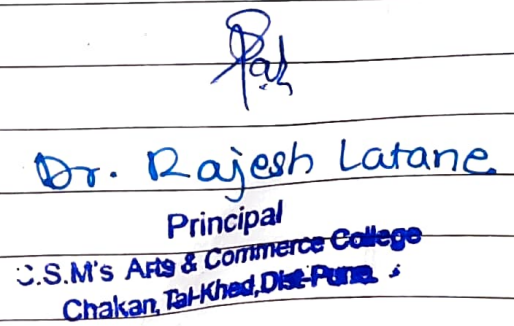 Dr. Rajesh Latane
Principal
C.S.M's Arts & Commerce College
Chakan, Tal-Khed, Dist-Pune.